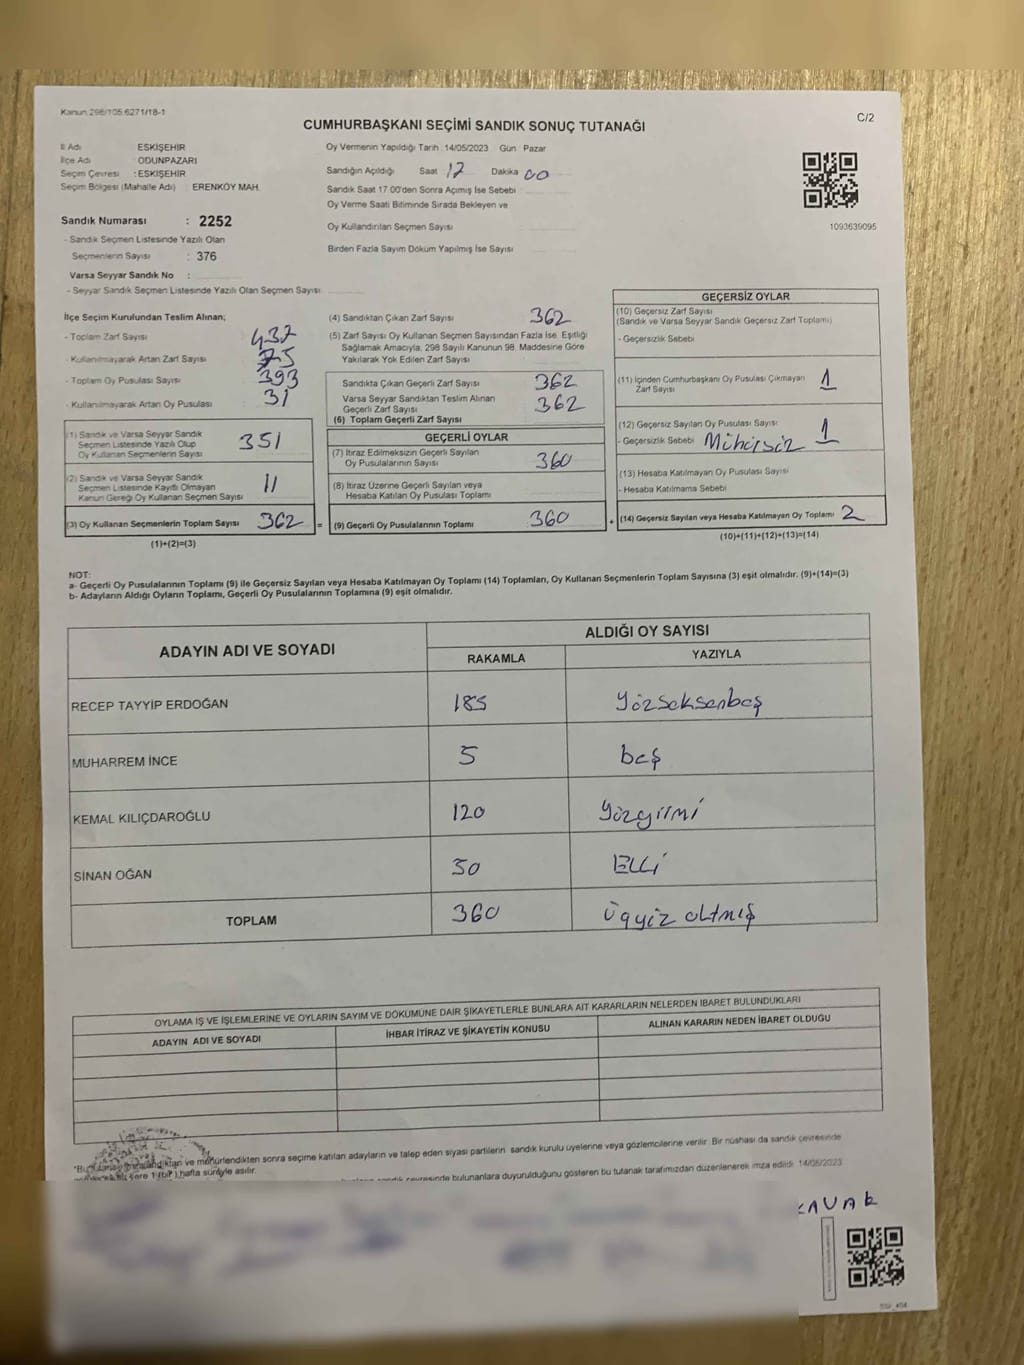 Kanun:298/105 6271/18-1
C/2
CUMHURBAŞKANI SEÇİMİ SANDIK SONUÇ TUTANAĞI
İl Adı ESKİŞEHİR
İlçe Adı : ODUNPAZARI
Seçim Çevresi : ESKİŞEHİR
Seçim Bölgesi (Mahalle Adı) : ERENKÖY MAH.
Sandık Numarası : 2252
- Sandık Seçmen Listesinde Yazılı Olan
Seçmenlerin Sayısı : 376
Varsa Seyyar Sandık No :
- Seyyar Sandık Seçmen Listesinde Yazılı Olan Seçmen Sayısı
Oy Vermenin Yapıldığı Tarih : 14/05/2023 Gün : Pazar
Sandığın Açıldığı Saat 17 Dakika 00
Sandık Saat 17:00'den Sonra Açımış İse Sebebi
Oy Verme Saati Bitiminde Sırada Bekleyen ve
Oy Kullandırılan Seçmen Sayısı
Birden Fazla Sayım Döküm Yapılmış İse Sayısı
1093639095
İlçe Seçim Kurulundan Teslim Alınan;
- Toplam Zarf Sayısı 437
- Kullanılmayarak Artan Zarf Sayısı 75
- Toplam Oy Pusulası Sayısı 393
- Kullanılmayarak Artan Oy Pusulası 31
(1) Sandık ve Varsa Seyyar Sandık
Seçmen Listesinde Yazılı Olup
Oy Kullanan Seçmenlerin Sayısı 351
(2) Sandık ve Varsa Seyyar Sandık
Seçmen Listesinde Kayıtlı Olmayan
Kanun Gereği Oy Kullanan Seçmen Sayısı 11
(3) Oy Kullanan Seçmenlerin Toplam Sayısı 362 =
(1)+(2)=(3)
(4) Sandıktan Çıkan Zarf Sayısı 362
(5) Zarf Sayısı Oy Kullanan Seçmen Sayısından Fazla İse, Eşitliği
Sağlamak Amacıyla, 298 Sayılı Kanunun 98. Maddesine Göre
Yakılarak Yok Edilen Zarf Sayısı
Sandıkta Çıkan Geçerli Zarf Sayısı 362
Varsa Seyyar Sandıktan Teslim Alınan
Geçerli Zarf Sayısı 362
(6) Toplam Geçerli Zarf Sayısı
GEÇERLİ OYLAR
(7) İtiraz Edilmeksizin Geçerli Sayılan
Oy Pusulalarının Sayısı 360
(8) İtiraz Üzerine Geçerli Sayılan veya
Hesaba Katılan Oy Pusulası Toplamı
(9) Geçerli Oy Pusulalarının Toplamı 360 +
GEÇERSİZ OYLAR
(10) Geçersiz Zarf Sayısı
(Sandık ve Varsa Seyyar Sandık Geçersiz Zarf Toplamı)
- Geçersizlik Sebebi
(11) İçinden Cumhurbaşkanı Oy Pusulası Çıkmayan
Zarf Sayısı 1
(12) Geçersiz Sayılan Oy Pusulası Sayısı 1
- Geçersizlik Sebebi Mühürsüz
(13) Hesaba Katılmayan Oy Pusulası Sayısı
- Hesaba Katılmama Sebebi
(14) Geçersiz Sayılan veya Hesaba Katılmayan Oy Toplamı 2
(10)+(11)+(12)+(13)=(14)
NOT:
a- Geçerli Oy Pusulalarının Toplamı (9) ile Geçersiz Sayılan veya Hesaba Katılmayan Oy Toplamı (14) Toplamları, Oy Kullanan Seçmenlerin Toplam Sayısına (3) eşit olmalıdır. (9)+(14)=(3)
b- Adayların Aldığı Oyların Toplamı, Geçerli Oy Pusulalarının Toplamına (9) eşit olmalıdır.
ADAYIN ADI VE SOYADI ALDIĞI OY SAYISI
RAKAMLA YAZIYLA
RECEP TAYYİP ERDOĞAN 185 Yüzseksenbeş
MUHARREM İNCE 5 beş
KEMAL KILIÇDAROĞLU 120 Yüzyirmi
SİNAN OĞAN 50 Elli
TOPLAM 360 Üçyüz altmış
OYLAMA İŞ VE İŞLEMLERİNE VE OYLARIN SAYIM VE DÖKÜMÜNE DAİR ŞİKAYETLERLE BUNLARA AİT KARARLARIN NELERDEN İBARET BULUNDUKLARI
ADAYIN ADI VE SOYADI İHBAR İTİRAZ VE ŞİKAYETİN KONUSU ALINAN KARARIN NEDEN İBARET OLDUĞU
ve mühürlendikten sonra seçime katılan adayların ve talep eden siyasi partilerin sandık kurulu üyelerine veya gözlemcilerine verilir. Bir nüshası da sandık çevresinde
yere 1 (bir) hafta süreyle asılır.
sandık çevresinde bulunanlara duyurulduğunu gösteren bu tutanak tarafımızdan düzenlenerek imza edildi. 14/05/2023